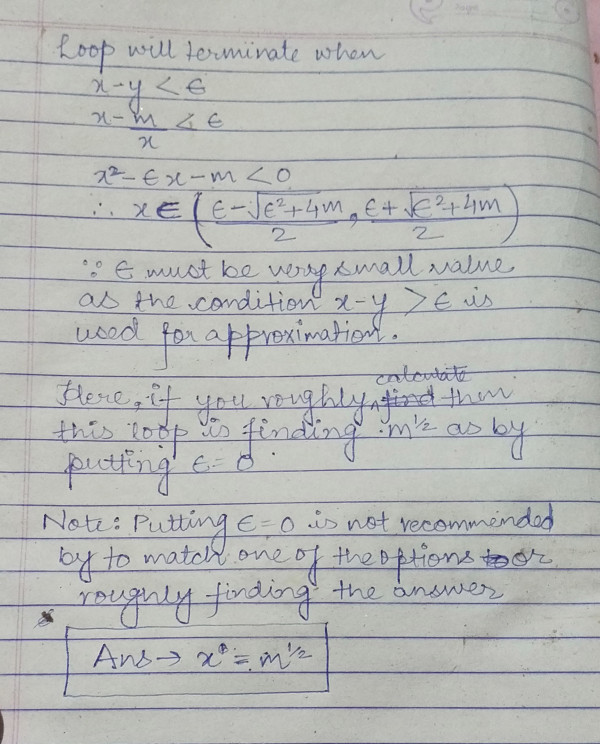 Loop will terminate when
x-y < ϵ
x - m/x < ϵ
x² - ϵx - m < 0
∴ x ∈ ( (ϵ - √(ϵ²+4m))/2 , (ϵ + √(ϵ²+4m))/2 )
∵ ϵ must be very small value
as the condition x-y > ϵ is
used for approximation.
Here, if you roughly calculate then
this loop is finding m^1/2 as by
putting ϵ = 0
Note: Putting ϵ=0 is not recommended
by to match one of the options or
roughly finding the answer
Ans → x = m^1/2